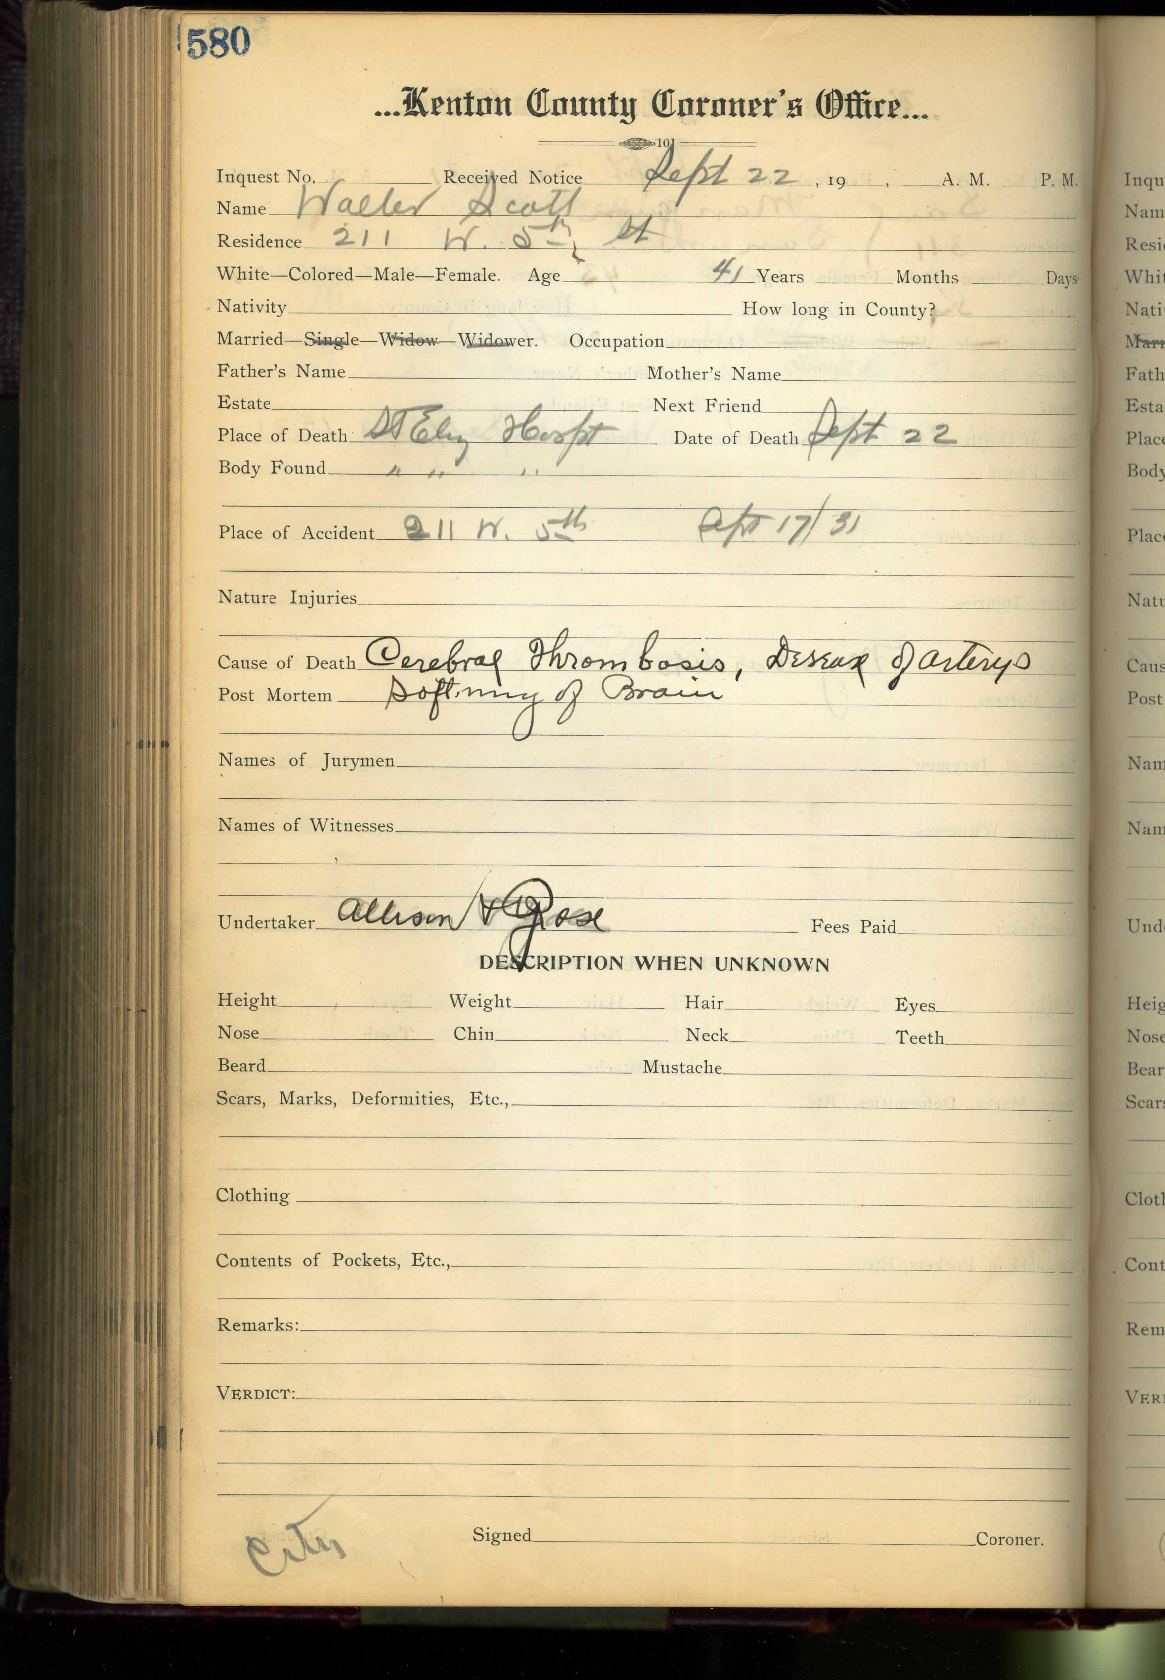 580
...Kenton County Coroner's Office...
101
Inquest No. Received Notice Sept 22, 19 , A. M. P. M.
Name Walter Scott
Residence 211 W. 5th St
White—Colored—Male—Female. Age 41 Years Months Days
Nativity How long in County?
Married—Single—Widow—Widower. Occupation
Father's Name Mother's Name
Estate Next Friend
Place of Death St Eliz Hospt Date of Death Sept 22
Body Found " " "
Place of Accident 211 W. 5th Sept 17/31
Nature Injuries
Cause of Death Cerebral Thrombosis, Desease of arterys
Post Mortem Softning of Brain
Names of Jurymen
Names of Witnesses
Undertaker Allison & Rose Fees Paid
DESCRIPTION WHEN UNKNOWN
Height Weight Hair Eyes
Nose Chin Neck Teeth
Beard Mustache
Scars, Marks, Deformities, Etc.,
Clothing
Contents of Pockets, Etc.,
Remarks:
VERDICT:
Signed Coroner.
City
Inqu
Nam
Resi
Whit
Nati
Marr
Fath
Esta
Place
Body
Plac
Natu
Caus
Post
Nam
Nam
Und
Heig
Nose
Bear
Scars
Clot
Cont
Rem
VER